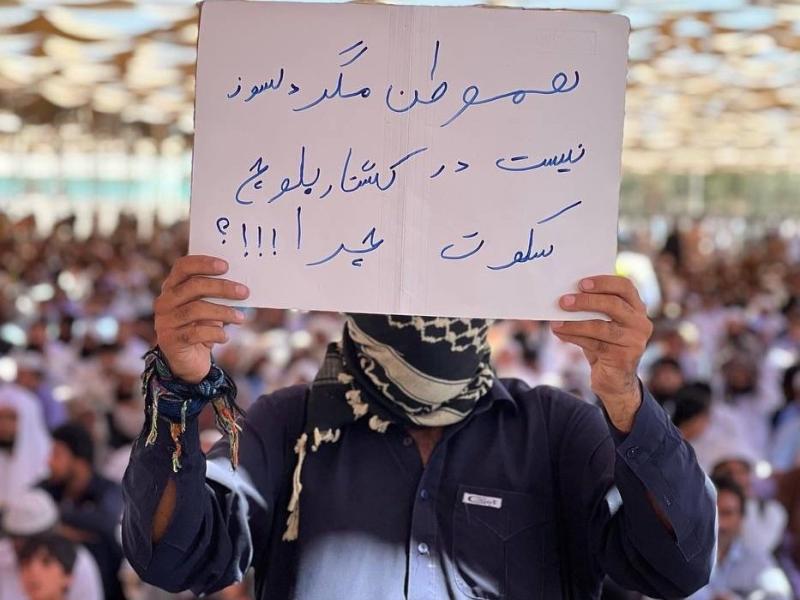 هموطن مگر دلسوز
نیست در کشتار بلوچ
سکوت چرا !!!؟